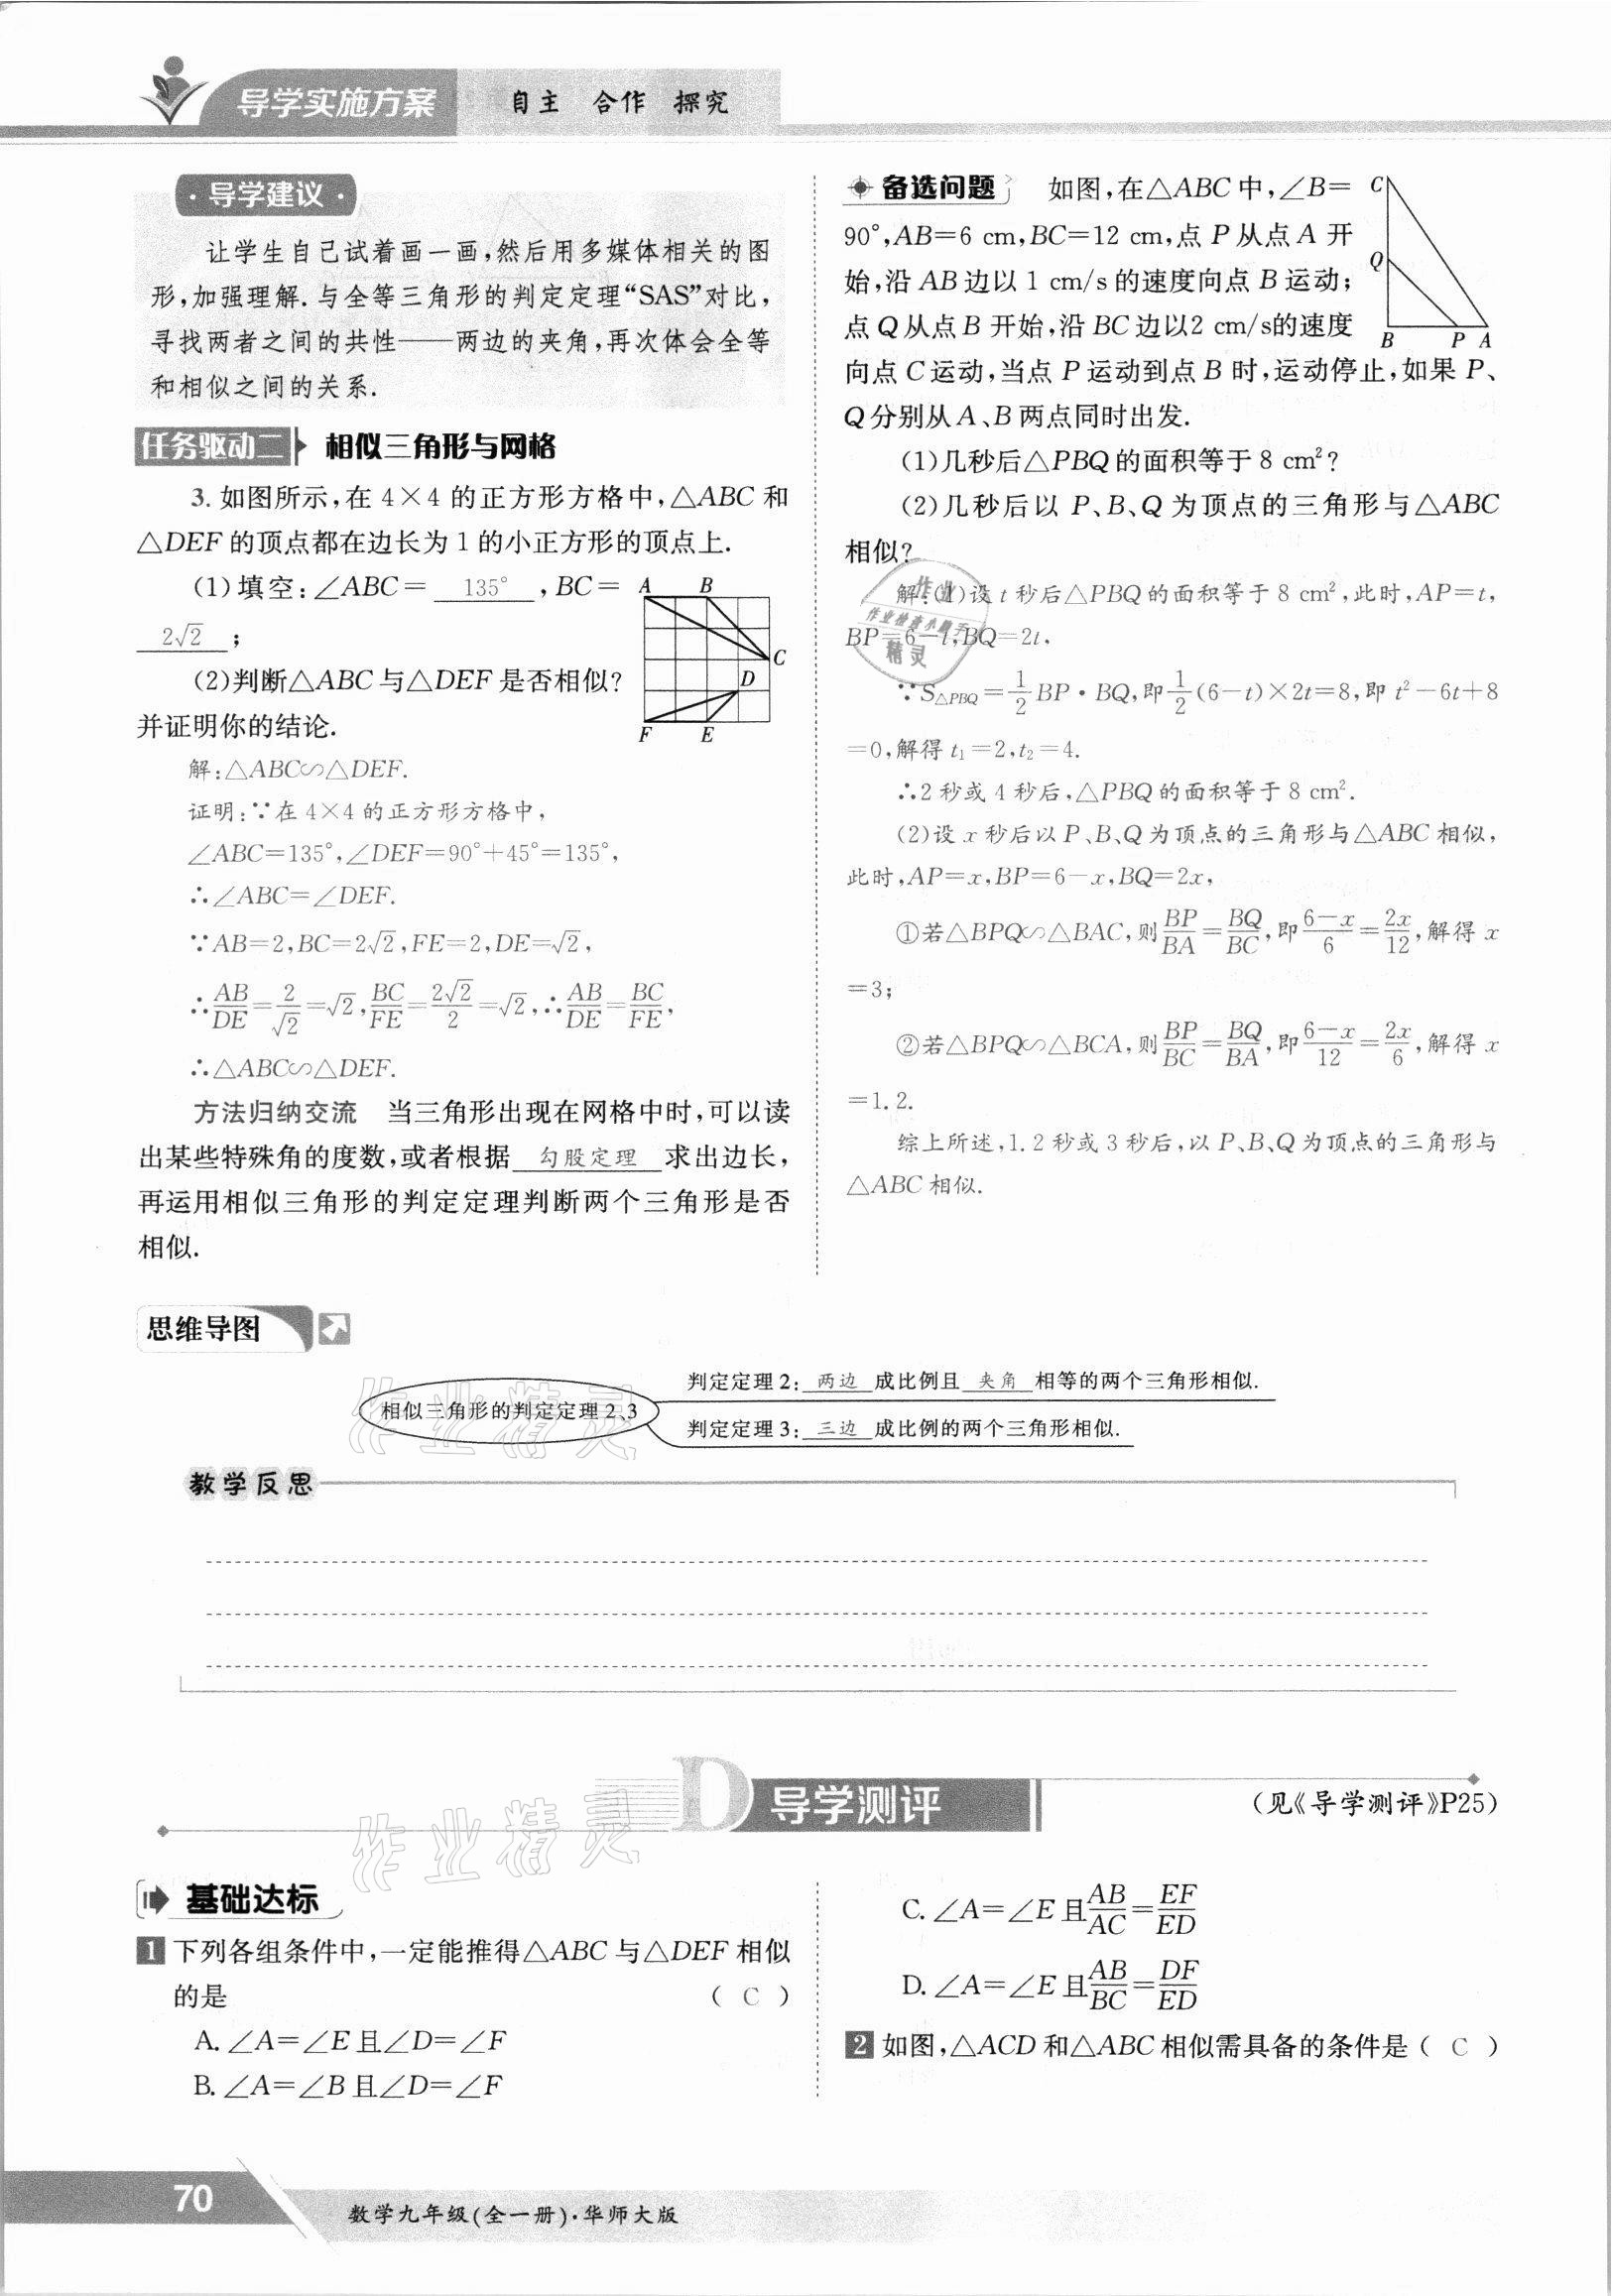 导学实施方案 自主 合作 探究
·导学建议·
让学生自己试着画一画,然后用多媒体相关的图
形,加强理解.与全等三角形的判定定理“SAS”对比,
寻找两者之间的共性——两边的夹角,再次体会全等
和相似之间的关系.
任务驱动二 相似三角形与网格
3.如图所示,在 4×4 的正方形方格中,△ABC 和
△DEF 的顶点都在边长为 1 的小正方形的顶点上.
(1)填空:∠ABC= 135° ,BC=
2√2 ;
(2)判断△ABC 与△DEF 是否相似?
并证明你的结论.
A B
C
D
F E
解:△ABC∽△DEF.
证明:∵在 4×4 的正方形方格中,
∠ABC=135°,∠DEF=90°+45°=135°,
∴∠ABC=∠DEF.
∵AB=2,BC=2√2,FE=2,DE=√2,
∴AB/DE=2/√2=√2,BC/FE=2√2/2=√2,∴AB/DE=BC/FE,
∴△ABC∽△DEF.
方法归纳交流 当三角形出现在网格中时,可以读
出某些特殊角的度数,或者根据 勾股定理 求出边长,
再运用相似三角形的判定定理判断两个三角形是否
相似.
备选问题 如图,在△ABC 中,∠B=
90°,AB=6 cm,BC=12 cm,点 P 从点 A 开
始,沿 AB 边以 1 cm/s 的速度向点 B 运动;
点 Q 从点 B 开始,沿 BC 边以2 cm/s的速度
向点 C 运动,当点 P 运动到点 B 时,运动停止,如果 P、
Q 分别从 A、B 两点同时出发.
C
Q
B P A
(1)几秒后△PBQ 的面积等于 8 cm²?
(2)几秒后以 P、B、Q 为顶点的三角形与△ABC
相似?
解:(1)设 t 秒后△PBQ 的面积等于 8 cm²,此时,AP=t,
BP=6-t,BQ=2t.
∵S△PBQ=1/2 BP·BQ,即1/2(6-t)×2t=8,即 t²-6t+8
=0,解得 t₁=2,t₂=4.
∴2 秒或 4 秒后,△PBQ 的面积等于 8 cm².
(2)设 x 秒后以 P、B、Q 为顶点的三角形与△ABC 相似,
此时,AP=x,BP=6-x,BQ=2x,
①若△BPQ∽△BAC,则BP/BA=BQ/BC,即(6-x)/6=2x/12,解得 x
=3;
②若△BPQ∽△BCA,则BP/BC=BQ/BA,即(6-x)/12=2x/6,解得 x
=1.2.
综上所述,1.2 秒或 3 秒后,以 P、B、Q 为顶点的三角形与
△ABC 相似.
作业
作业检查小助手
精灵
思维导图
相似三角形的判定定理2、3
判定定理 2: 两边 成比例且 夹角 相等的两个三角形相似.
判定定理 3: 三边 成比例的两个三角形相似.
作业精灵
教学反思
D 导学测评
(见《导学测评》P25)
作业精灵
基础达标
1 下列各组条件中,一定能推得△ABC 与△DEF 相似
的是 ( C )
A. ∠A=∠E 且∠D=∠F
B. ∠A=∠B 且∠D=∠F
C. ∠A=∠E 且AB/AC=EF/ED
D. ∠A=∠E 且AB/BC=DF/ED
2 如图,△ACD 和△ABC 相似需具备的条件是 ( C )
70
数学九年级(全一册)·华师大版